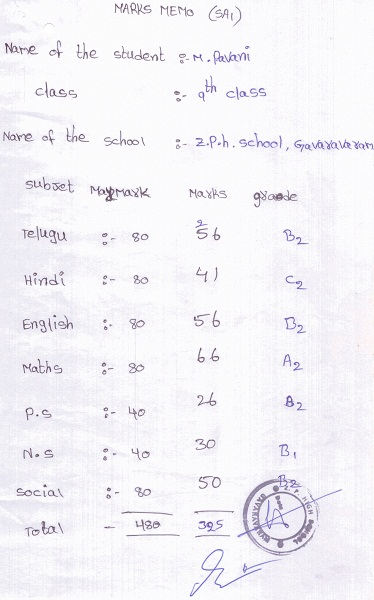 MARKS MEMO (SA1)
Name of the student :- M. Pavani
class :- 9th class
Name of the school :- Z.P.h. school, Gavaravaram
Subjet Maxmark Marks grade
Telugu :- 80 56 B2
Hindi :- 80 41 C2
English :- 80 56 B2
Maths :- 80 66 A2
P.S :- 40 26 B2
N.S :- 40 30 B1
Social :- 80 50 B2
Total - 480 325
Z. P. HIGH SCHOOL